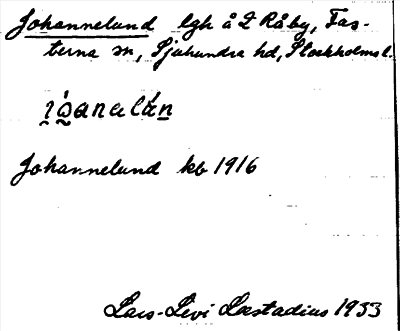 Johannelund lgh å 2 Råby, Fas-
terna sn, Sjuhundra hd, Stockholms l.
Johannelund kb 1916
Lars-Levi Læstadius 1933